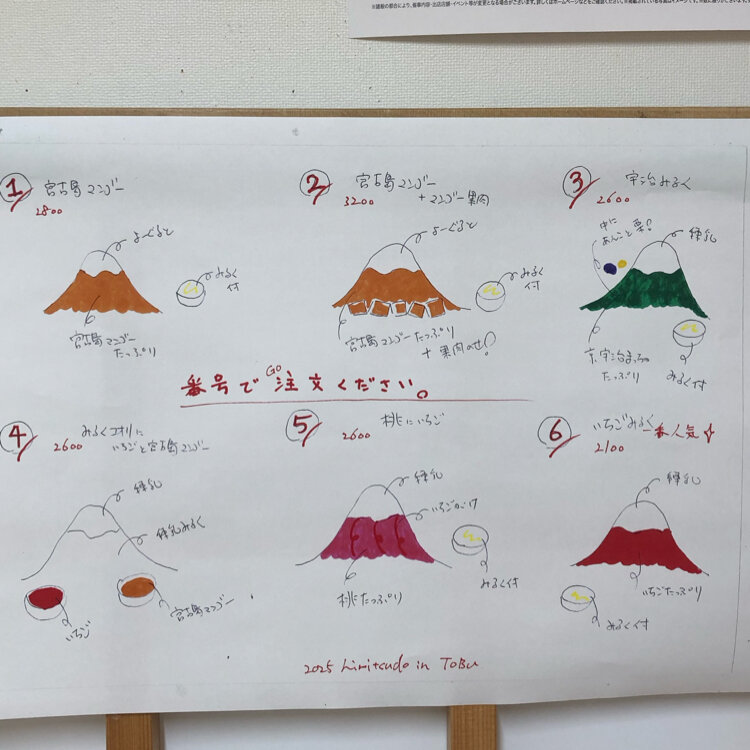 ※諸般の都合により、催事内容・出店店舗・イベント等が変更となる場合がございます。詳しくはホームページなどをご確認ください。
1 宮古島マンゴー
2800
よーぐると
みるく付
宮古島マンゴー
たっぷり
2 宮古島マンゴー
+マンゴー果肉
3200
よーぐると
みるく付
宮古島マンゴー たっぷり
+ 果肉のせ!
3 宇治みるく
2600
中に
あんこと栗!
練乳
京、宇治まっちゃ
たっぷり
みるく付
番号で GO 注文ください。
4 みるくコオリに
いちごと宮古島マンゴー
2600
練乳
練乳みるく
いちご
宮古島マンゴー
5 桃にいちご
2600
練乳
いちごがけ
桃たっぷり
みるく付
6 いちごみるく 一番人気
2100
練乳
いちごたっぷり
みるく付
2025 himitsudo in TOBU